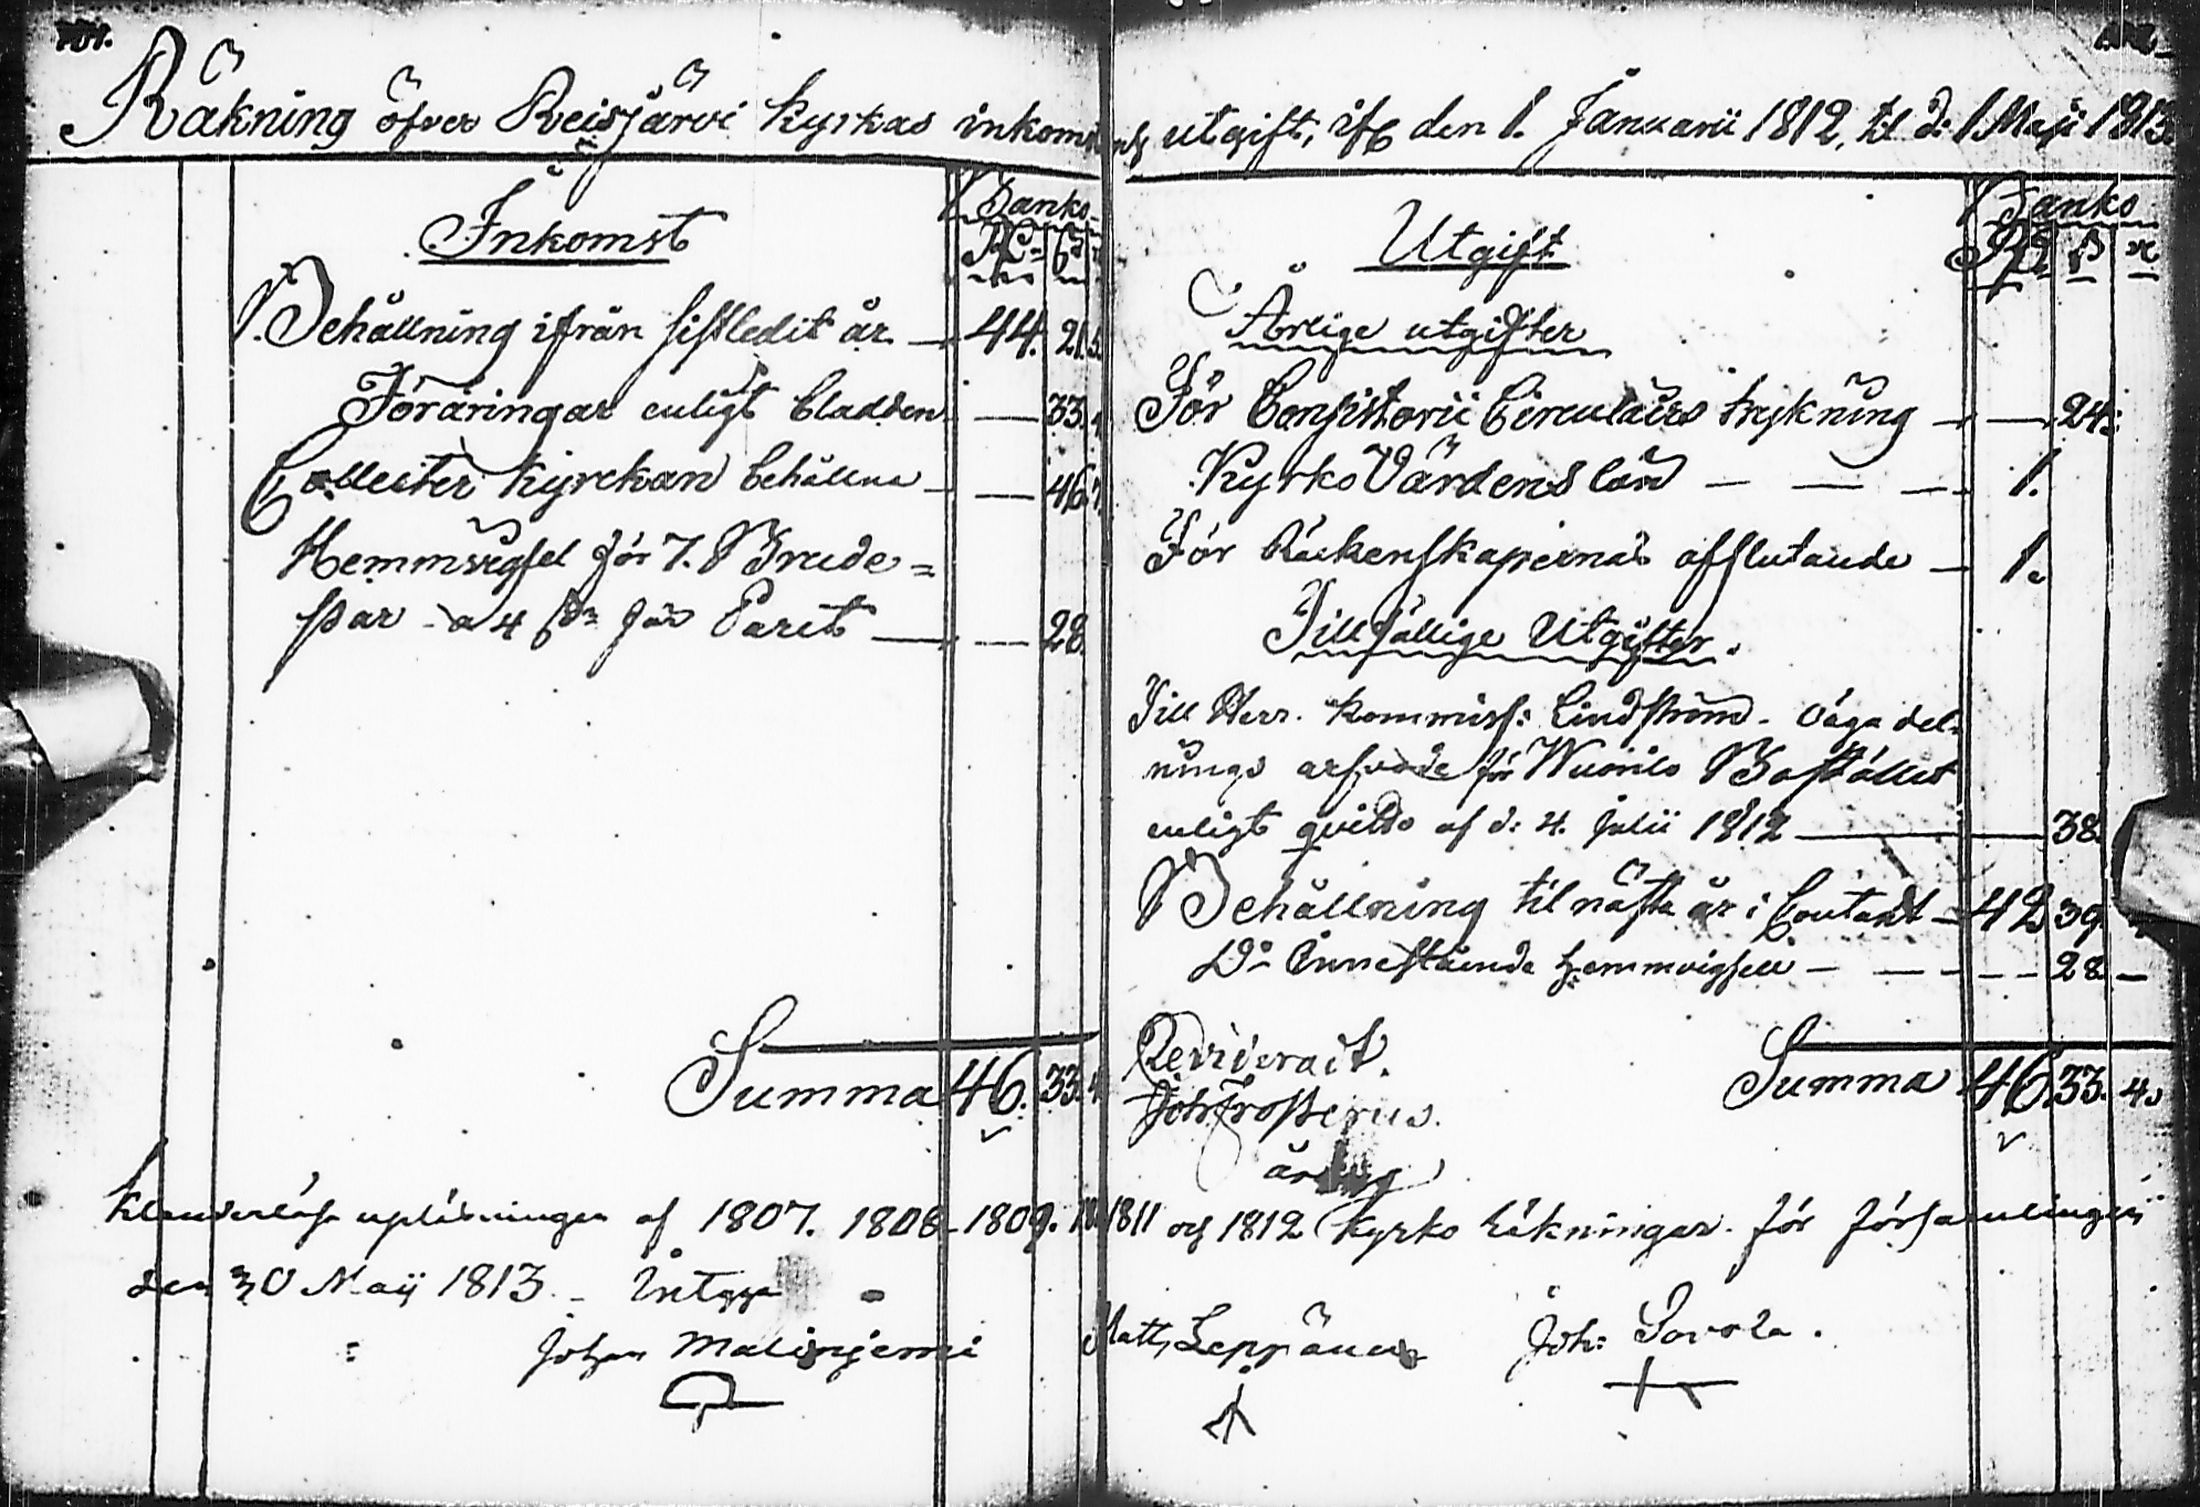 Räkning öfver Reisjärvi Kyrkas inkomst och utgift, ifr den 1. Januarii 1812, til d: 1 Maji 1813.
Inkomst
Banko
Behållning ifrån sistledit år — 44. 21. 5.
Föräringar enligt bladden — 33.
Collecter kyrckan behållne — 46. 7.
Hemmvigsel för 7. Brude=
par a 4 för Paret — 28.
Summa 46. 33. 4
Utgift
Banko
Årlige utgifter
För Consistorii Circulairs tryckning — 24:
Kyrko Värdens lön — 1.
För Räckenskapernas afslutande — 1.
Tillfällige Utgifter.
Till Herr Kommiss: Lindström
nings arfvode för Wuorila Bostället
enligt qvitto af d: 4. Julii 1812 — 38.
Behållning til nästa år i Contant — 42 39
Do Innestående hemmvigsell — 28 —
Revideradt.
Joh Frosterus.
Summa 46. 33. 4.
Klanderlösa uplösningen af 1807. 1808 1809. 1811 och 1812 Kyrko Räkningar för Församlingen
den 30 Maij 1813. Intyga
Johan Malinjerwi Matts Leppänen Joh: Savola.